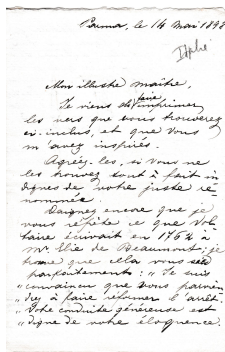 Parma, le 14 Mai 1898
Mon illustre maître,
Je viens de faire imprimer
les vers que vous trouverez
ci-inclus, et que vous
m'avez inspirés.
Agréez-les, si vous ne
les trouvez tout à fait in
dignes de votre juste re
nommée.
Daignez encore que je
vous répète ce que Vol
taire écrivait en 1762 à
Mr Elie de Beaumont; je
trouve que cela vous sied
parfaitement: "Je suis
"convaincu que vous parvien
"drez à faire réformer l'arrêt.
"Votre conduite généreuse est
"digne de votre éloquence.